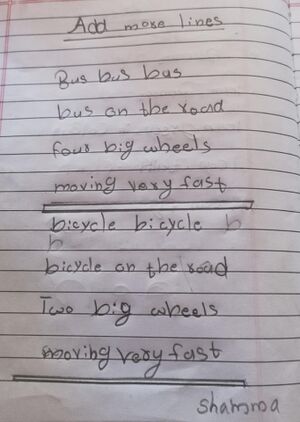 Add more lines
Bus bus bus
bus on the road
four big wheels
moving very fast
bicycle bicycle b
b
bicycle on the road
Two big wheels
moving very fast